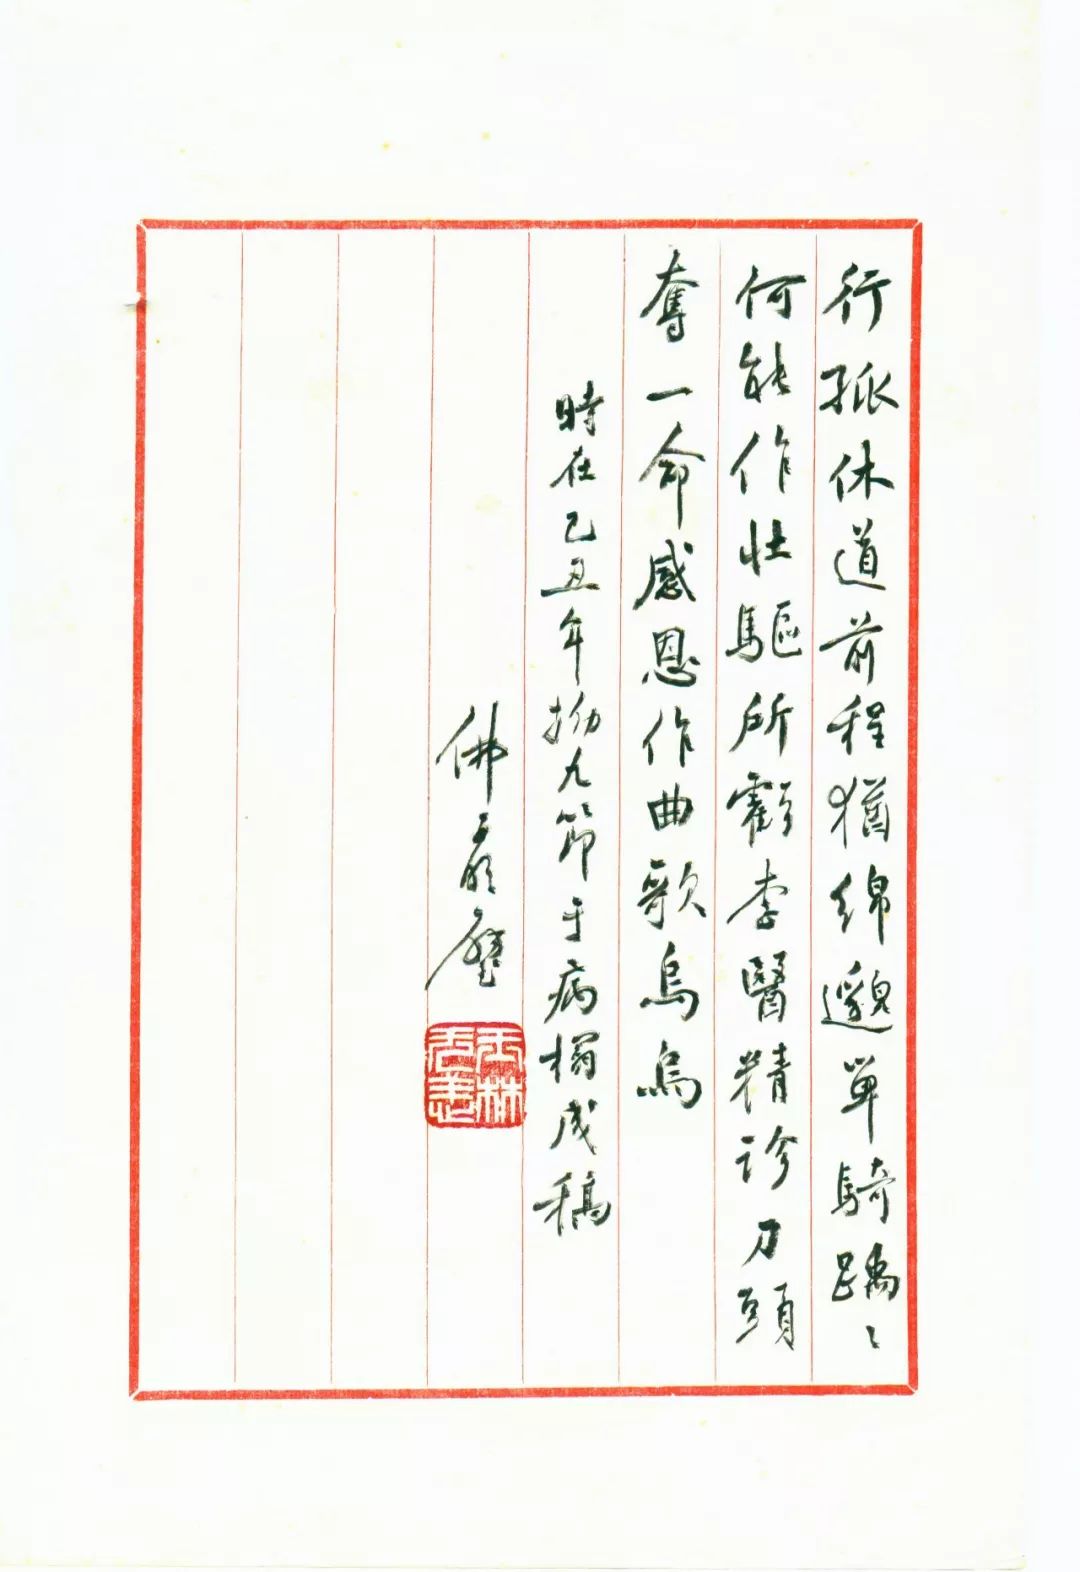 行孤休道前程猶綿邈單騎踽〻
何能作壯驅所虧李醫精診刀頭
奪一命感恩作曲歌烏烏
時在己丑年拗九節于病榻成稿
佛